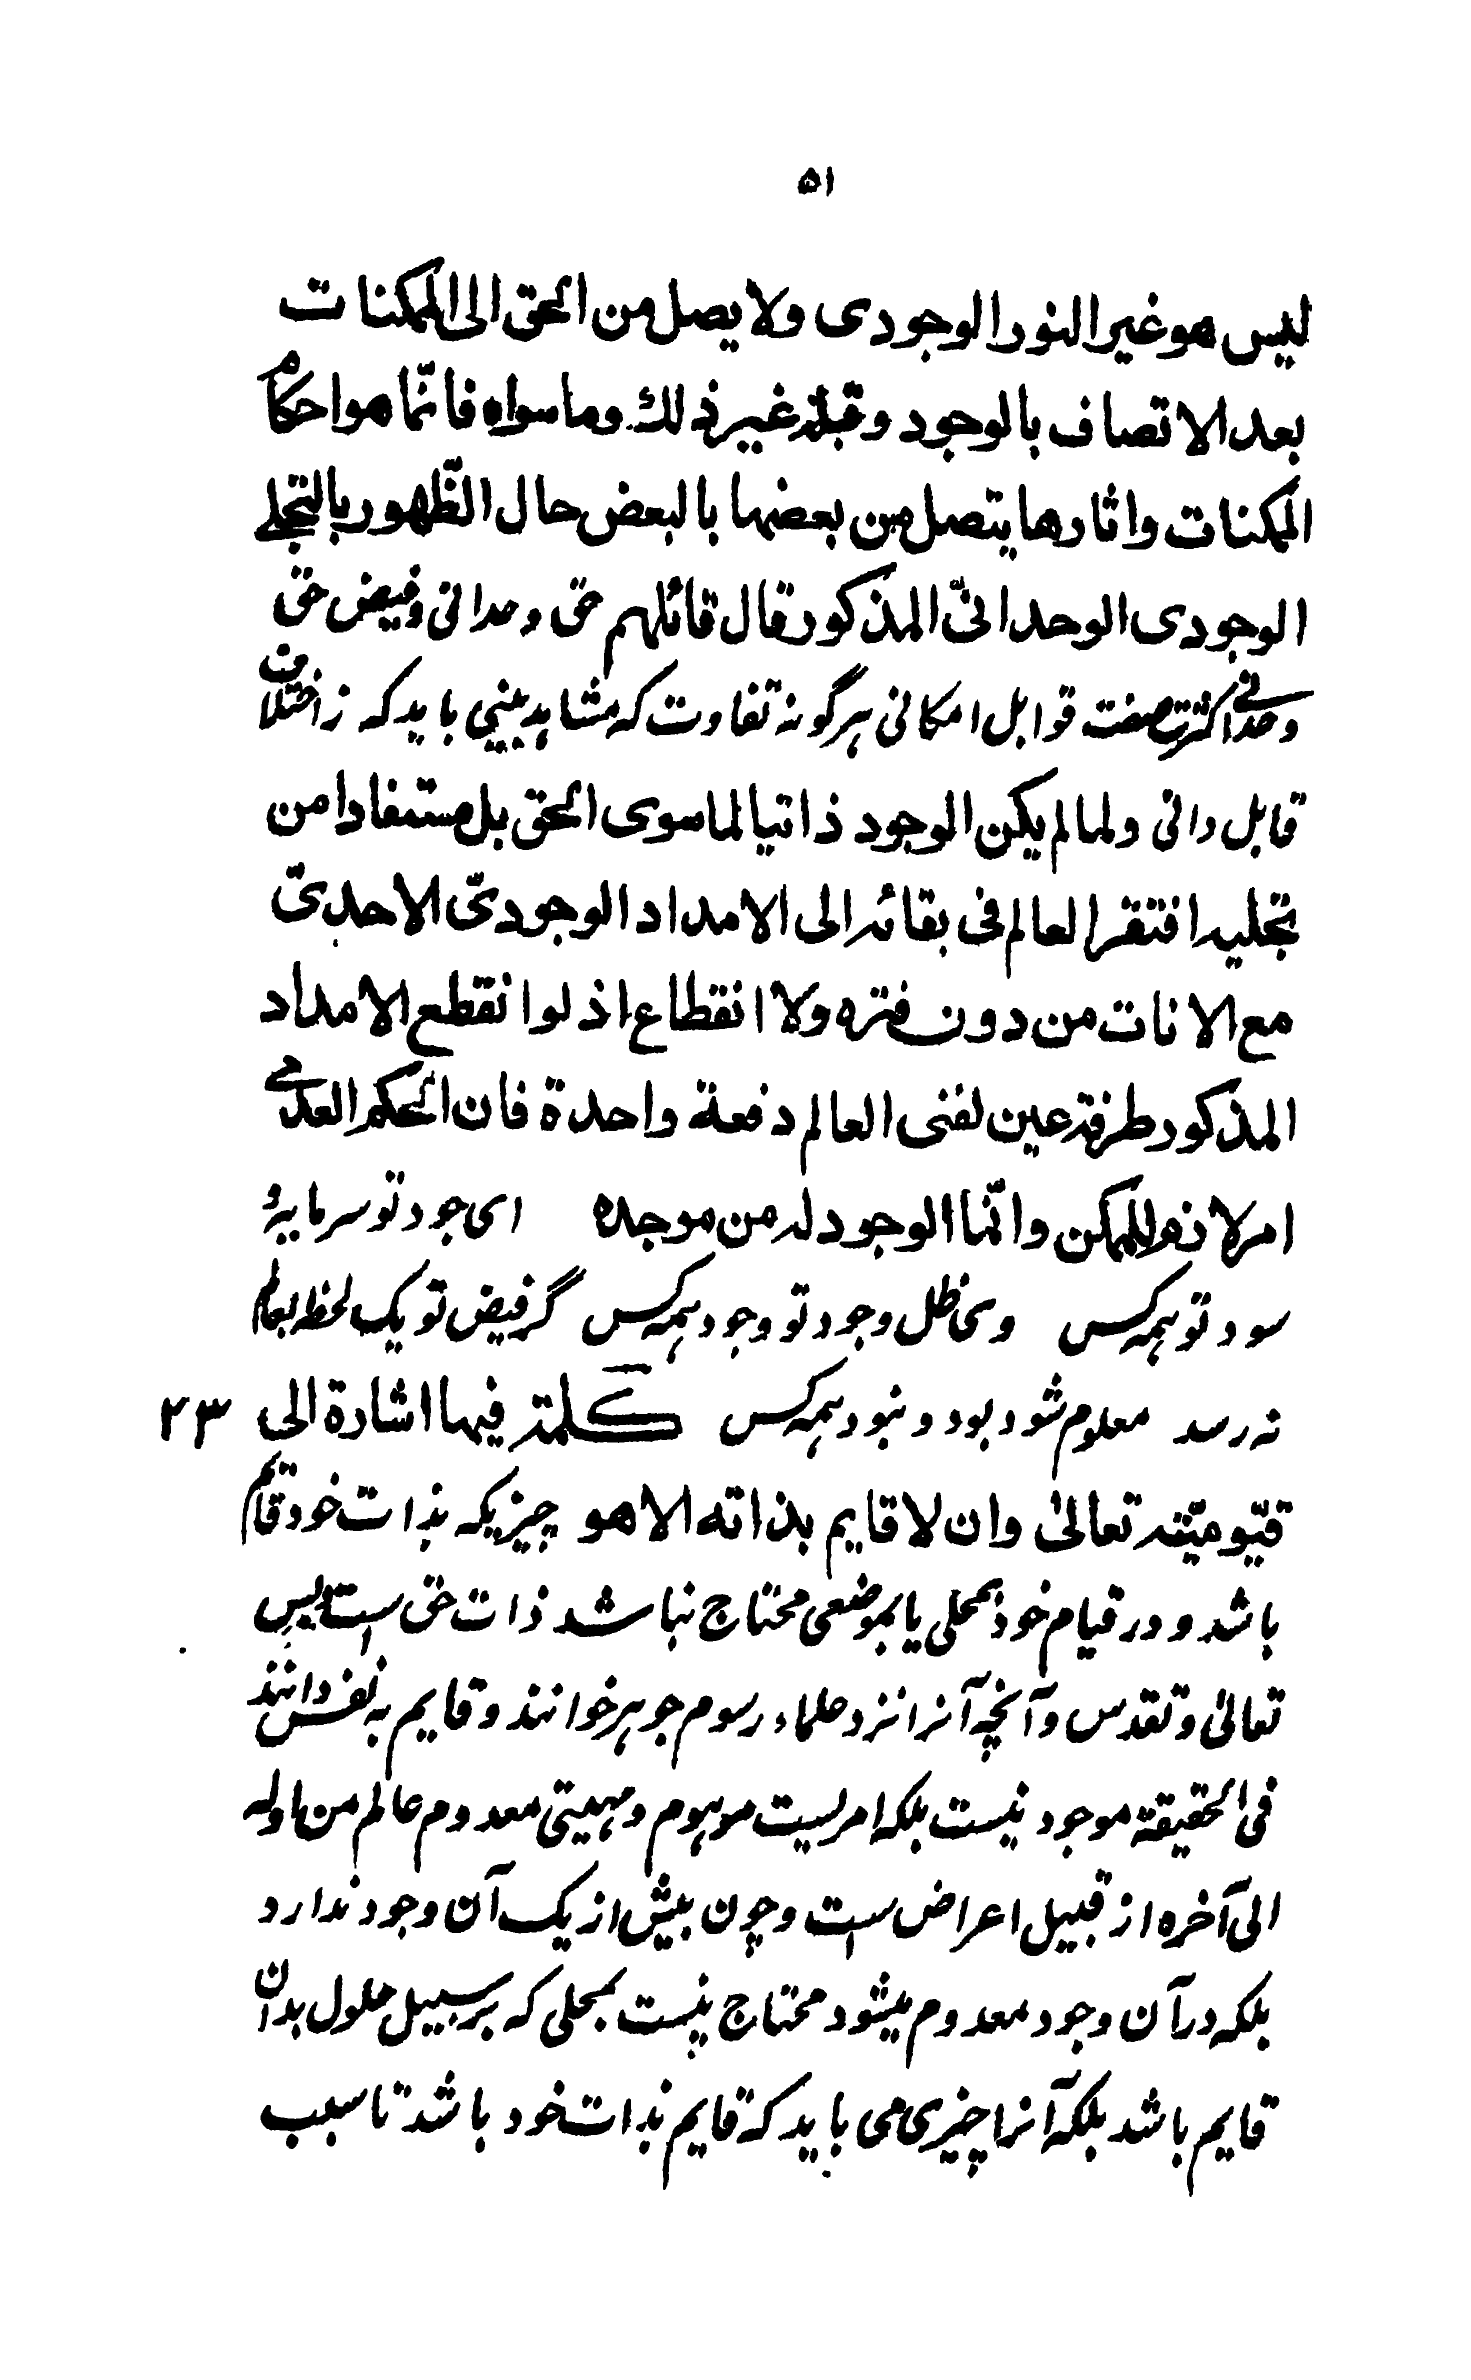 ۵۱
ليس هو غير النور الوجودى ولا يصل من الحق الى الممكنات
بعد الاتصاف بالوجود وقبله غير ذلك وما سواه فانّما هو احكام
الممكنات واثارها يتصل من بعضها بالبعض حال الظّهور بالتجلے
الوجودى الوحدانىّ المذكور قال قائلهم حق وحدانی و فیض حق
وحدانے کثرت صفت قوابل امکانی ہر گونہ تفاوت کہ مشاہد بینی باید کہ ز اختلاف
قابل دانی ولما لم يكن الوجود ذاتيا لما سوى الحق بل مستفادا من
تجليه افتقر العالم فى بقائه الى الامداد الوجودىّ الاحدىّ
مع الانات من دون فتره ولا انقطاع اذ لو انقطع الامداد
المذكور طرفة عين لفنى العالم دفعة واحدة فان الحكم العدمے
امر لازم للممكن وانّما الوجود له من موجده ای جود تو سرمایۂ
سود تو ہمہ کس وی ظل وجود تو وجود ہمہ کس گر فیض تو یک لحظہ بعالم
نہ رسد معلوم شود بود و نبود ہمہ کس كلمة فيها اشارة الى ۲۳
قيّوميّته تعالیٰ وان لا قايم بذاته الا هو چیزیکہ بذات خود قایم
باشد و در قیام خود بمحلی یا بموضعی محتاج نباشد ذات حق است پس
تعالیٰ و تقدس و آنچہ آنرا نزد علماء رسوم جوہر خوانند و قایم بہ نفس دانند
فی الحقیقۃ موجود نیست بلکہ امریست موہوم و مہیتی معدوم عالم من اولہ
الی آخرہ از قبیل اعراض ست و چون بیش از یک آن وجود ندارد
بلکہ در آن وجود معدوم میشود محتاج نیست بمحلی کہ بر سبیل حلول بدان
قایم باشد بلکہ آنرا چیزی می باید کہ قایم بذات خود باشد تا سبب